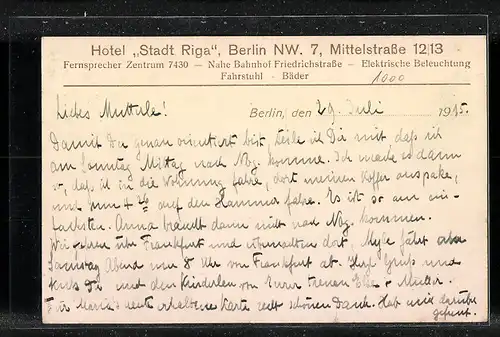 Hotel „Stadt Riga", Berlin NW. 7, Mittelstraße 12|13
Fernsprecher Zentrum 7430 — Nahe Bahnhof Friedrichstraße — Elektrische Beleuchtung
Fahrstuhl · Bäder
1000
Liebes Mutterle!
Berlin, den 29. Juli 1915.
Damit Du genau orientiert bist, teile ich Dir mit daß ich
am Sonntag Mittag nach Nbg. komme. Ich mache es dann
so, daß ich in die Wohnung fahre, dort meinen Koffer auspacke,
und um 4 auf den Hammer fahre. Es ist so am ein-
fachsten. Anna braucht dann nicht nach Nbg. kommen.
Wir fahren über Frankfurt und übernachten dort, fährt
Samstag Abend um 8 Uhr von Frankfurt ab. Gruß und
Kuß Dir und den Kinderlen von Eurer treuen &
Für Maria's heute erhaltene Karte recht schönen Dank. Hab mich darüber
gefreut.